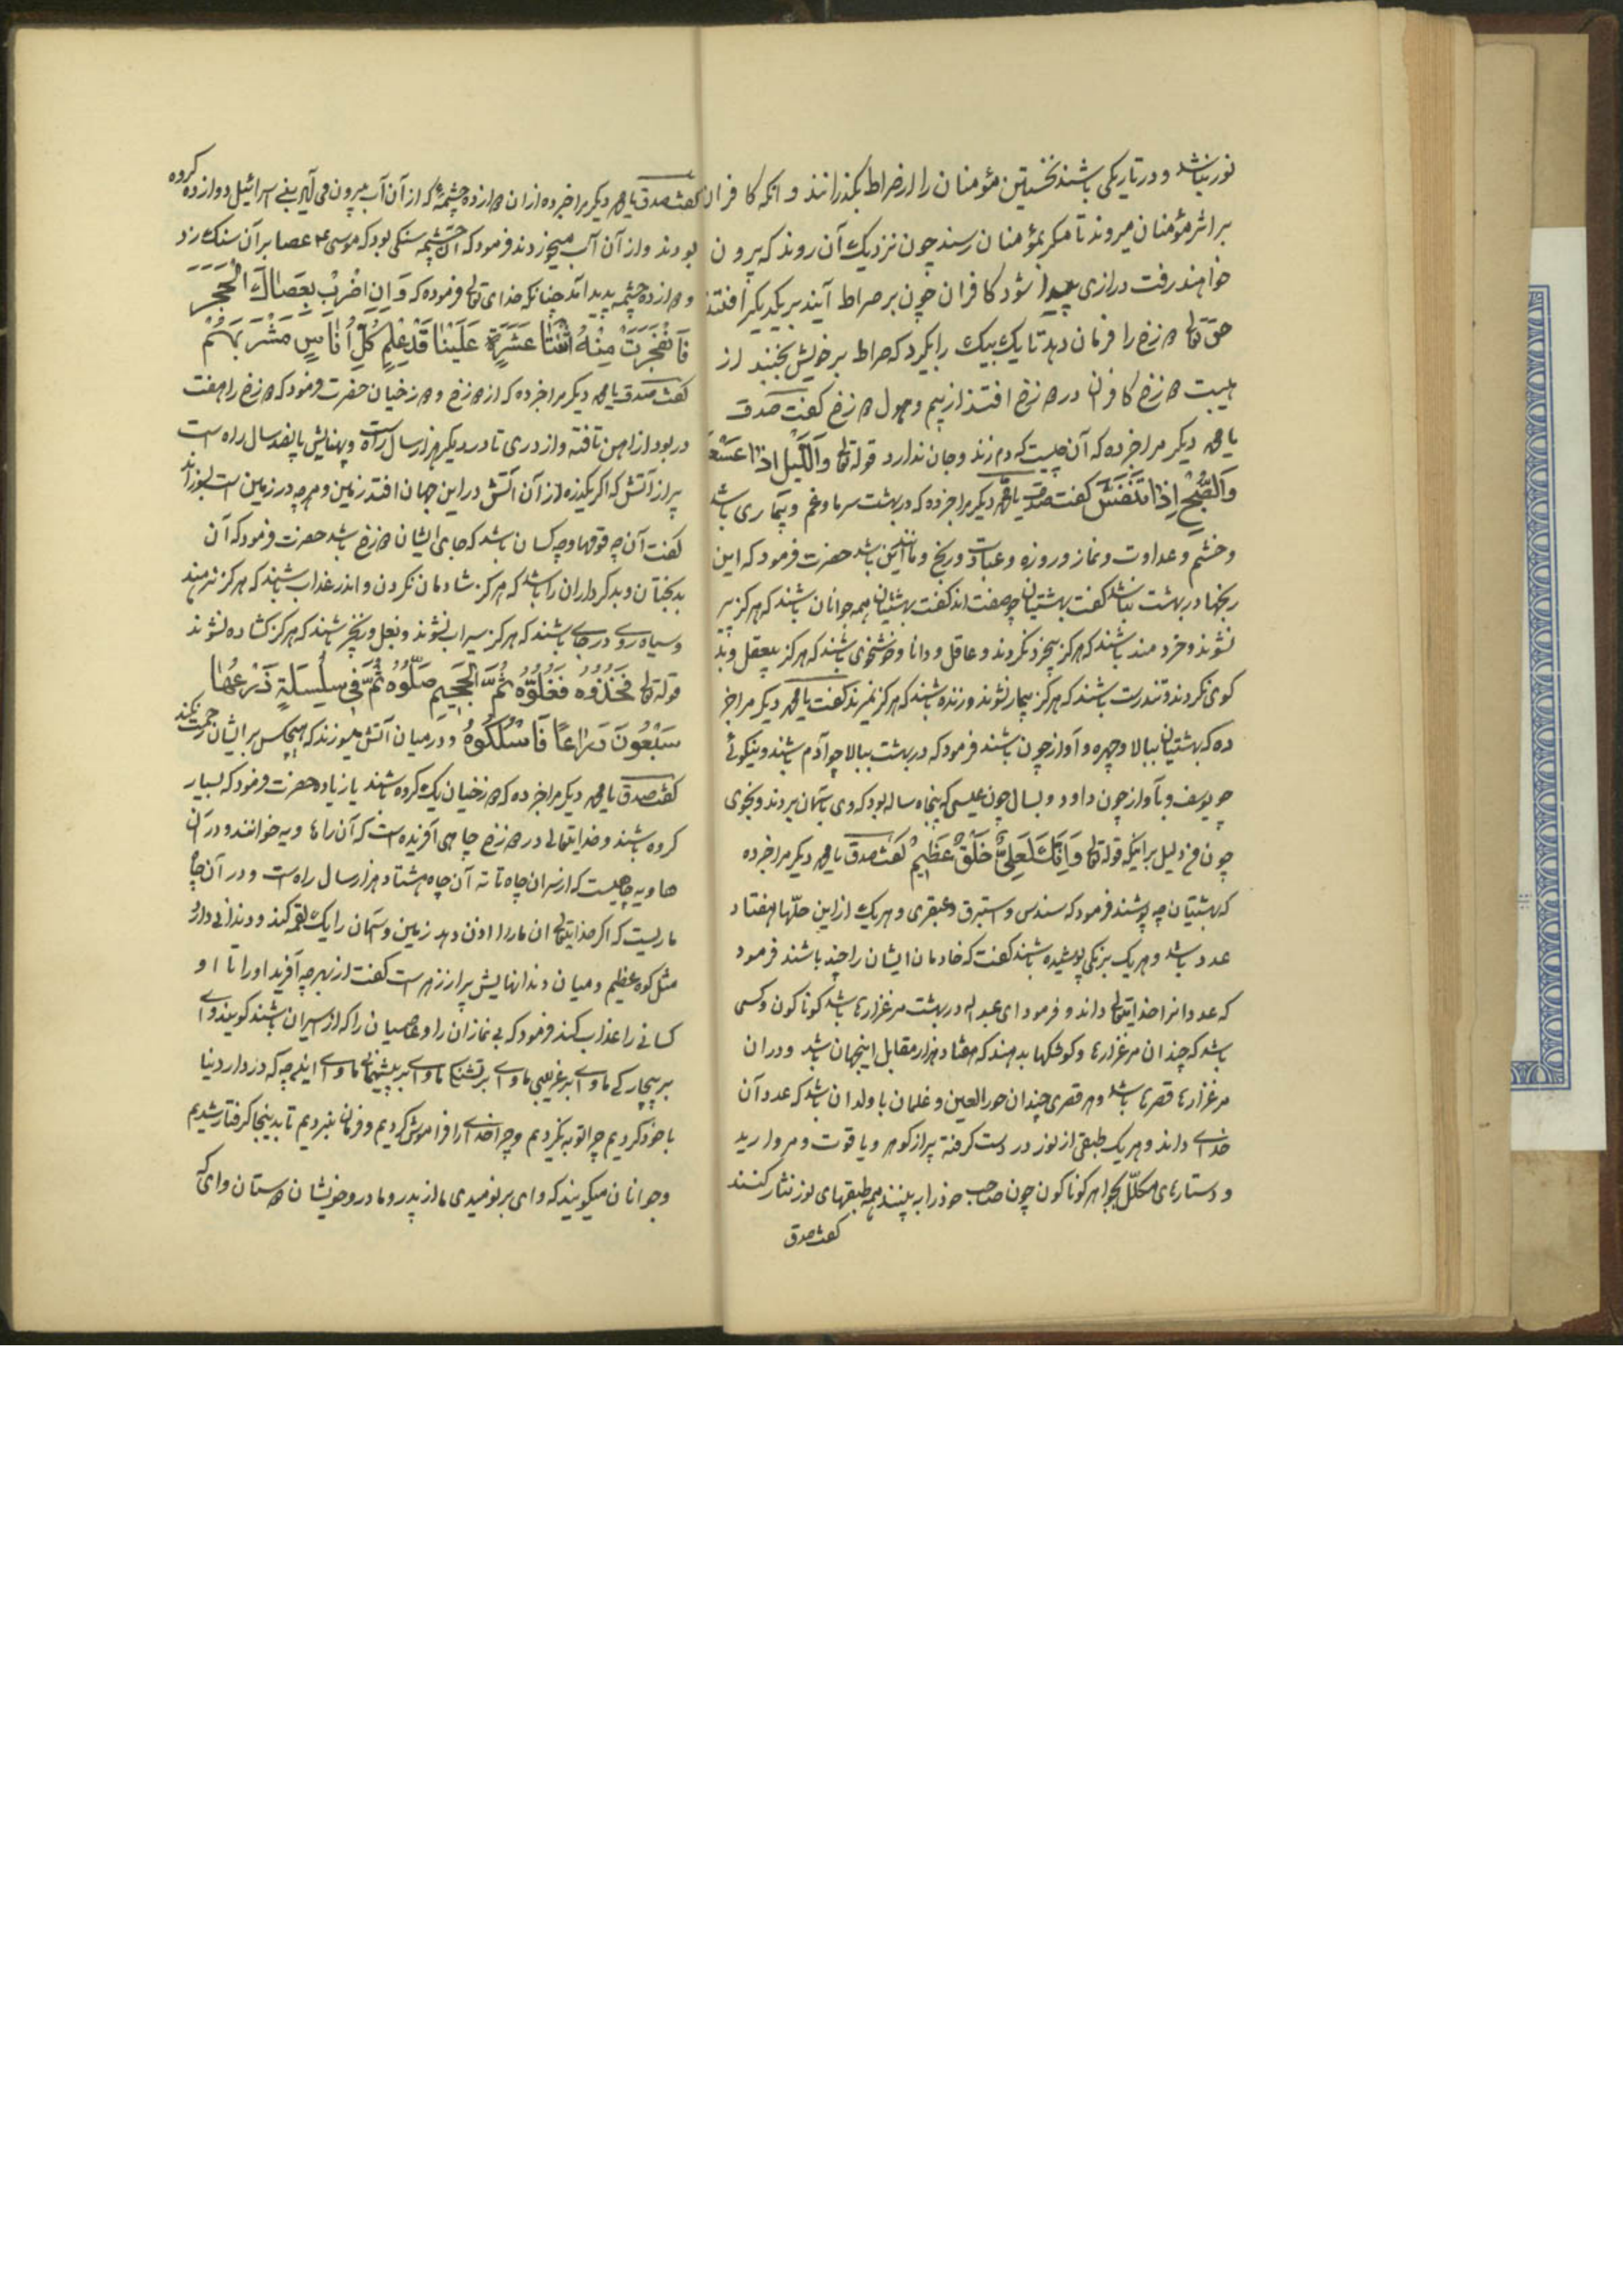 نور نباشد و در تاریکی باشند نخستین مؤمنان را از صراط بگذرانند و آنکه کافران
بر اثر مؤمنان میروند تا مگر بمؤمنان رسند چون نزدیک آن روند که بیرون
خواهند رفت درازی پیدا شود کافران چون بر صراط آیند بر یکدیگر افتند
حق تعالی دوزخ را فرمان دهد تا یک بیک را بگیرد که صراط بر خویش بجنبد از
هیبت دوزخ کافران در دوزخ افتند از بیم و هول دوزخ گفت صدق
یا محمد دیگر مرا خبر ده که آن چیست که دم زند و جان ندارد قوله تعالی وَاللَّیْلِ اِذَا عَسْعَسَ
وَالصُّبْحِ اِذَا تَنَفَّسَ گفت صدقت یا محمد دیگر مرا خبر ده که در بهشت سرما و غم و بیماری باشد
و خشم و عداوت و نماز و روزه و عبادت و رنج و مانند این باشد حضرت فرمود که این
رنجها در بهشت نباشد گفت بهشتیان چه صفت اند گفت بهشتیان همه جوانان باشند که هرگز پیر
نشوند و خردمند باشند که هرگز بیخرد نگردند و عاقل و دانا و خوشخوی باشند که هرگز بیعقل و بد
خوی نگردند و تندرست باشند که هرگز بیمار نشوند و زنده باشند که هرگز نمیرند گفت یا محمد دیگر مرا خبر
ده که بهشتیان ببالا و چهره و آواز چون باشند فرمود که در بهشت ببالا چو آدم باشند و بنیکوئی
چو یوسف و بآواز چون داود و بسال چون عیسی که پنجاه ساله بود که وی بآسمان بردند و بخوی
چون من دلیل بر اینکه قوله تعالی وَاِنَّکَ لَعَلیٰ خُلُقٍ عَظِیْمٍ گفت صدق یا محمد دیگر مرا خبر ده
که بهشتیان چه پوشند فرمود که سندس و استبرق و عبقری و هر یک از این حلّها هفتاد
عدد باشد و هر یک برنگی پوشیده باشند گفت که خادمان ایشان را چند باشند فرمود
که عدد انرا خدایتعالی داند و فرمود ای عبد الله در بهشت مرغزارها باشد گوناگون و کسی
باشد که چندان مرغزارها و کوشکها بدهند که هفتاد هزار مقابل اینجهان باشد و در آن
مرغزارها قصرها باشد و هر قصری چندان حور العین و غلمان با ولدان باشد که عدد آن
خدای داند و هر یک طبقی از نور در دست گرفته پر از گوهر و یاقوت و مروارید
و دستارهای مکلّل بجواهر گوناگون چون صاحب خود را به بینند همه طبقهای نور نثار کنند
گفت صدق
گفت صدق یا محمد دیگر مرا خبر ده از آن دوازده چشمهٔ که از آن آب بیرون می آید بنی اسرائیل دوازده گروه
بودند و از آن آب میخوردند فرمود که آن چشمه سنگی بود که موسی ع عصا بر آن سنگ زد
دوازده چشمه پدید آمد چنانکه خدای تعالی فرموده که وَ اَنِ اضْرِبْ بِعَصَاكَ الْحَجَرَ
فَانْفَجَرَتْ مِنْهُ اثْنَتَا عَشَرَةَ عَلَیْنَا قَدْ عَلِمَ كُلُّ اُنَاسٍ مَشْرَبَهُمْ
گفت صدق یا محمد دیگر مرا خبر ده که از دوزخ و دوزخیان حضرت فرمود که دوزخ را هفت
در بود از آهن تافته و از دری تا در دیگر هزار سال راه است و پهنایش پانصد سال راه است
پر از آتش که اگر یک ذره از آن آتش در این جهان افتد زمین و هر چه در زمین است بسوزاند
گفت آن چه قومها و چه کسان باشد که جای ایشان دوزخ باشد حضرت فرمود که آن
بدبختان و بدکرداران را باشد که هرگز شادمان نگردن و اندر عذاب باشند که هرگز نرهند
و سیاه روی در جای باشند که هرگز سیراب نشوند و بغل و زنجیر باشند که هرگز گشاده نشوند
قوله تعالی فَخُذُوُهُ فَغَلُّوُهُ ثُمَّ الْجَحِیمِ صَلُّوُهُ ثُمَّ فِی سِلْسِلَةٍ ذَرْعُهَا
سَبْعُونَ ذِرَاعًا فَاسْلُكُوهُ و در میان آتش میسوزند که هیچکس بر ایشان رحمت نکند
گفت صدق یا محمد دیگر مرا خبر ده که دوزخیان یک گروه باشند یا زیاده حضرت فرمود که بسیار
گروه باشند و خدایتعالی در دوزخ چاهی آفریده است که آن را هاویه خوانند و در آن
هاویه چاهیست که از سر آن چاه تا ته آن چاه هشتاد هزار سال راه است و در آن چاه
ماریست که اگر خدایتعالی آن مار را اذن دهد زمین و آسمان را یک لقمه کند و دندانی دارد
مثل کوه عظیم و میان دندانهایش پر از زهر است گفت از بهر چه آفرید او را تا او
کسانی را عذاب کند فرمود که بی نمازان را و عاصیان را که از اسیران باشند گویند وای
بر بیچارگی ما وای بر غریبی ما وای بر تشنگی ما وای بر پشیمانی ما وای اینهمه که در دار دنیا
با خود کردیم چرا توبه نکردیم و چرا خدای را فراموش کردیم و فرمان نبردیم تا بدینجا گرفتار شدیم
و جوانان میگویند که وای بر نومیدی ما از پدر و مادر و خویشان دوستان وای که